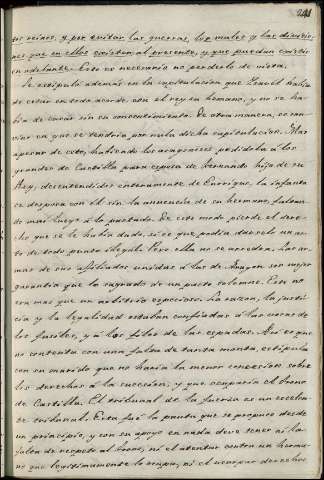 241
sus reinos, y por evitar las guerras, los males y las divisio-
nes que en ellos existen al presente, y que puedan existir
en adelante. Esto es necesario no perderlo de vista.
Se estipuló además en la capitulacion que Isabel habia
de casar en todo acorde con el rey su hermano, y no se ha-
bia de casar sin su consentimiento. De otra manera, se con-
vino en que se tendria por nula dicha capitulacion. Mas
apesar de esto, habiendo los aragoneses pedídola á los
grandes de Castilla para esposa de Fernando hijo de su
Rey, desentendidos enteramente de Enrique, la infanta
se desposa con él sin la anuencia de su hermano, faltan-
do muy luego á lo pactado. De este modo pierde el dere-
cho que se le habia dado, si es que podia dársele un ac-
to de todo punto ilegal. Pero ella no se arredra. Las ar-
mas de sus afiliados unidas á las de Aragon son mejor
garantia que lo sagrado de un pacto solemne. Esto no
era mas que un artificio especioso. La razon, la justi-
cia y la legalidad estaban confiadas á las bocas de
los fusiles, y á los filos de las espadas. Asi es que
no contenta con una falta de tanta monta, estipula
con su marido que no haria la menor concesion sobre
los derechos á la succesion, y que ocuparia el trono
de Castilla. El tribunal de la fuerza es un excelen-
te tribunal. Esta fué la pauta que se propuso desde
un principio, y con su apoyo en nada deve tener ni la
falta de respeto al trono, ni el atentar contra un herma-
no que legitimamente lo ocupa, ni el usurpar derechos